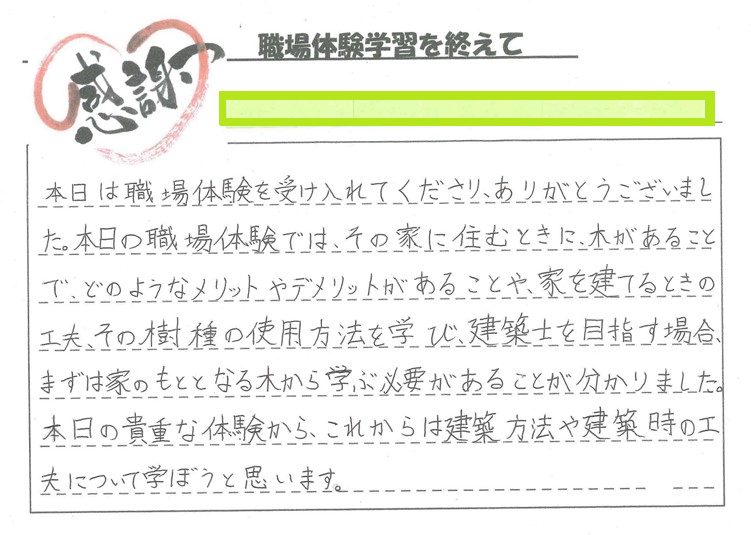 感謝
職場体験学習を終えて
本日は職場体験を受け入れてくださり、ありがとうございまし
た。本日の職場体験では、その家に住むときに、木があること
で、どのようなメリットやデメリットがあることや、家を建てるときの
工夫、その樹種の使用方法を学び、建築士を目指す場合、
まずは家のもととなる木から学ぶ必要があることが分かりました。
本日の貴重な体験から、これからは建築方法や建築時の工
夫について学ぼうと思います。